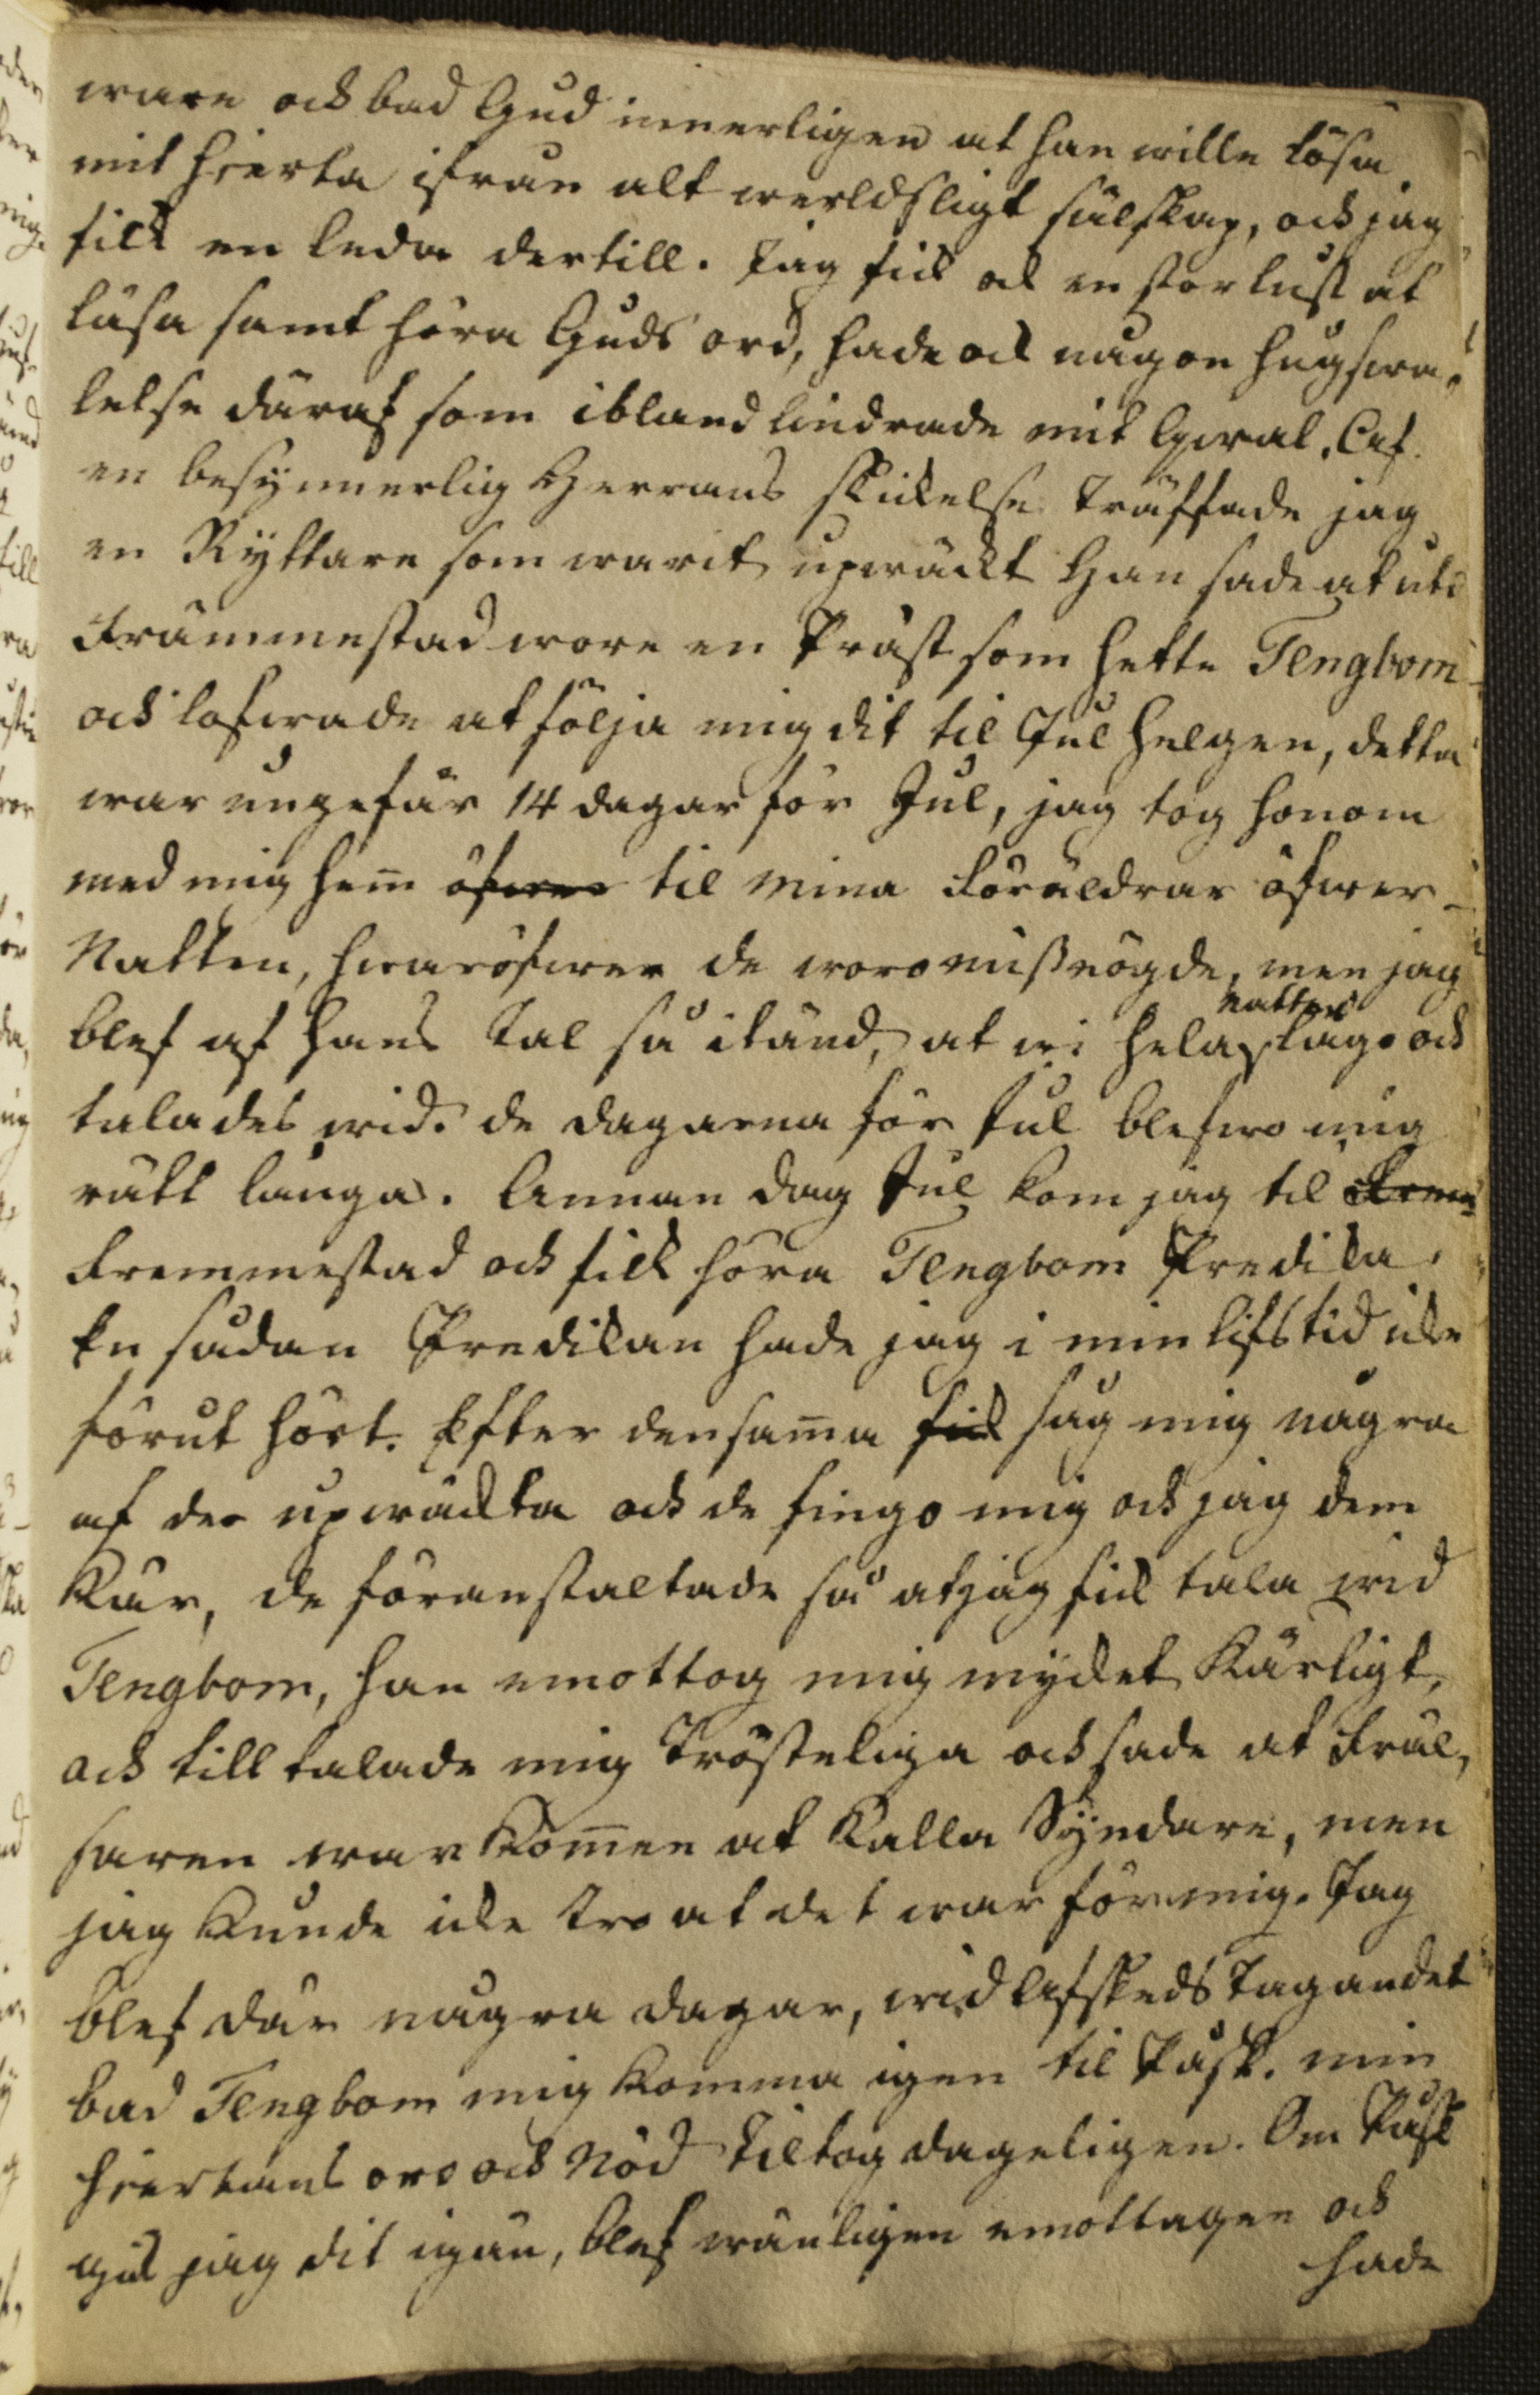 ware och bad Gud innerligen at han wille lösa
mit hierta ifrån alt werldsligt sälskap, och jag
fick en leda dertill. Jag fick ock en stor lust at
läsa samt höra Guds ord, hade ock någon hugswa-
lelse däraf som ibland lindrade mit qwal. Af
en besynnerlig Herrans skickelse träffade jag
en Ryttare som warit upwäckt Han sade at uti
Främmestad wore en Präst som hette Tengbom
och lofwade at följa mig dit til Jul helgen, detta
war ungefär 14 dagar för Jul, jag tog honom
med mig hem̄ öfwer til mina Föräldrar öfwer-
Natten, hwaröfwer de woro misnögde, men jag
blef af hans tal så itänd, at wi hela natten låge och
talades wid. de dagarna för Jul blefwo mig
rätt långa. Annan dag Jul kom jag til Frem
Fremmestad och fick höra Tengbom Predika.
En sådan Predikan hade jag i min lifstid icke
förut hört. Efter densam̄a fick såg mig några
af de upwäckta och de fingo mig och jag dem
Kär, de föranstaltade så at jag fick tala wid
Tengbom, han emottog mig mycket Kärligt,
och till talade mig Trösteliga och sade at Fräl-
saren war Kom̄en at Kalla Syndare, men
jag Kunde icke tro at det war för mig. Jag
blef där några dagar, wid Afskeds Tagandet
bad Tengbom mig komma igen til Påsk. min
hiertans oro och Nöd tiltog dageligen. Om Påsk
gick jag dit igän, blef wänligen emottagen och
hade